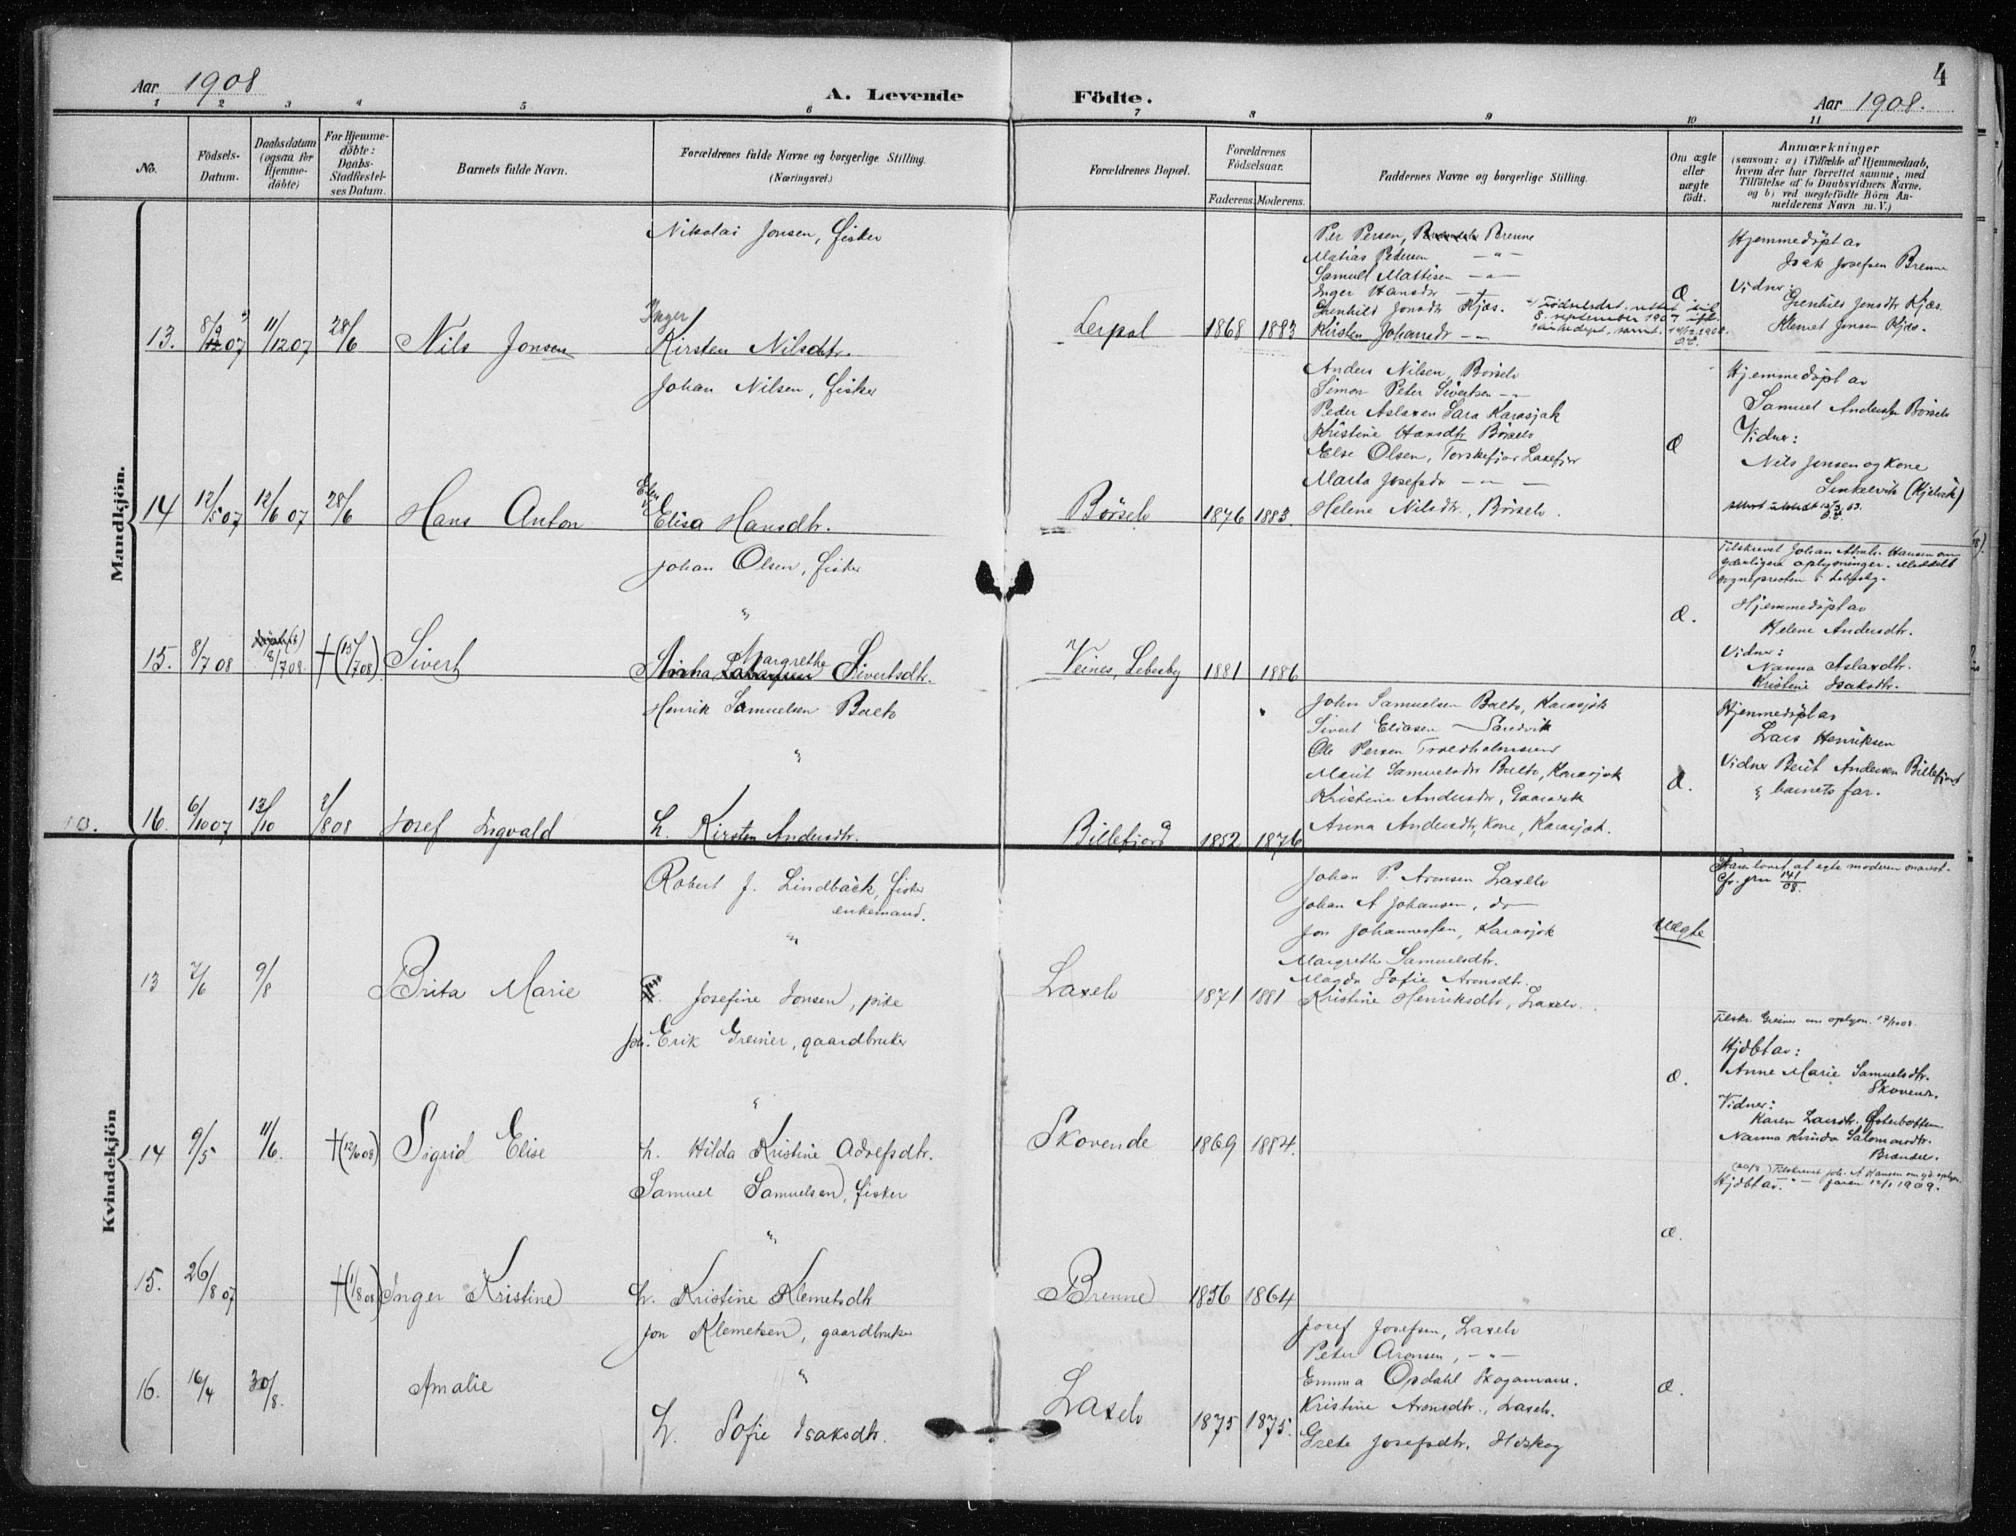 Aar 1908
A. Levende Födte.
4
Aar 1908.
1 2 3 4 5 6 7 8 9 10 11
No.
Födsels-Datum.
Daabsdatum (ogsaa for Hjemme-döbte)
For Hjemme-döbte: Daabs-Stadfæstel-ses Datum.
Barnets fulde Navn.
Forældrenes fulde Navne og borgerlige Stilling. (Næringsvei.)
Forældrenes Bopæl.
Forældrenes Födselsaar.
Faderens. Moderens.
Faddernes Navne og borgerlige Stilling.
Om ægte eller uægte födt.
Anmærkninger
(saasom: a) i Tilfælde af Hjemmedaab, hvem der har forrettet samme, med Tilföielse af to Daabsvidners Navne, og b) ved uægtefödte Börn An-melderens Navn m. V.)
Mandkjön.
13. 8/9 07 11/12 07 28/6 Nils Jonsen
Nikolai Jonsen, fisker
Inger
Kirsten Nilsdtr.
Lerpol 1868 1883
Per Persen, Brenne
Matias Pedersen — " —
Samuel Mattisen — " —
Inger Hansdtr — " —
Gunhild Jonsdtr Kjæs.
Kirsten Johansdtr — " —
Æ
Hjemmedöpt av
Isak Josefsen Brenne
Vidner:
Gunhild Jonsdtr Kjæs.
Klemet Jonsen Kjæs.
14 12/5 07 12/6 07 28/6 Hans Anton
Johan Nilsen, fisker
Elen
Elisa Hansdtr.
Börselv 1876 1883.
Anders Nilsen, Börselv
Simon Peter Sivertsen — " —
Peder Aslaxen Sara Karasjok
Kristine Hansdtr Börselv
Else Olsen, Torskefjor Laxefjor
Marta Josefsdr — " —
Helene Nilsdtr., Börselv.
Æ
Hjemmedöpt av
Samuel Andersen Börselv
Vidner:
Nils Jensen og Kone
15. 8/7 08 8/7 08. † (15/7 08) Sivert
Johan Olsen, fisker
"
Margrethe Sivertsdtr.
Veines, Lebesby 1881 1886
Æ.
Tilskrevet Johan Hansen om
yderligere oplysninger. Meddelt
sognepresten i Lebesby.
Hjemmedöpt av
Helene Andersdtr.
Vidner:
Nanna Aslaxdtr.
Kristine Isaksdtr.
16. 6/10 07 13/10 2/8 08 Josef Ingvald
Henrik Samuelsen Balto
"
h. Kirsten Andersdtr.
Billefjord 1852 1876
John Samuelsen Balto, Karasjok
Sivert Eliasen — Sandvik
Ole Persen Troldholmsund
Marit Samuelsdtr Balto, Karasjok
Kristine Andersdtr,
Anna Andersdtr, Kone, Karasjok.
Æ.
Hjemmedöpt av
Lars Henriksen
Vidner Berit Andersen Billefjord
& barnets far.
Kvindekjön
13 7/6 9/8 Brita Marie
Robert J. Lindbäck, fisker
enkemand.
"
Josefine Jonsen, pike
Laxelv 1871 1881
Johan P. Aronsen Laxelv
Johan A Johansen, do —
Jon Johannessen, Karasjok
Margrethe Samuelsdtr.
Magda Sofie Aronsdtr.
Kristine Henriksdtr, Laxelv.
Uægte
Faren lovet at egte moderen snarest.
Cfr. jrn 141/08.
14 9/5 11/6. † (12/6 08) Sigrid Elise
Joh. Erik Greiner, gaardbruker
"
h. Hilda Kristine Adrefsdtr.
Skovende 1869 1884.
Æ.
Tilskr. Greiner om oplysn. 17/10 08.
Hjdbt av:
Anne Marie Samuelsdtr.
Skovende.
Vidner:
Karen Larsdtr. Østerbotten
Nanna Salomonsdtr.
15. 26/8 07 † (1/8 08) Inger Kristine
Samuel Samuelsen, fisker
"
h. Kristine Klemetsdtr
Brenne 1856 1864
Æ.
Tilskrevet Joh. A Hansen om yd. oplysn.
Hjdbt av. " — faren 12/1 1909.
16. 16/4 30/8. Amalie
Jon Klemetsen, gaardbruker
"
h. Sofie Isaksdtr.
Laxelv 1875 1875.
Josef Josefsen, Laxelv
Peter Aronsen, — " —
Emma Opdahl Skoganvare.
Kristine Aronsdtr., Laxelv.
Grete Josefsdtr.
Æ.